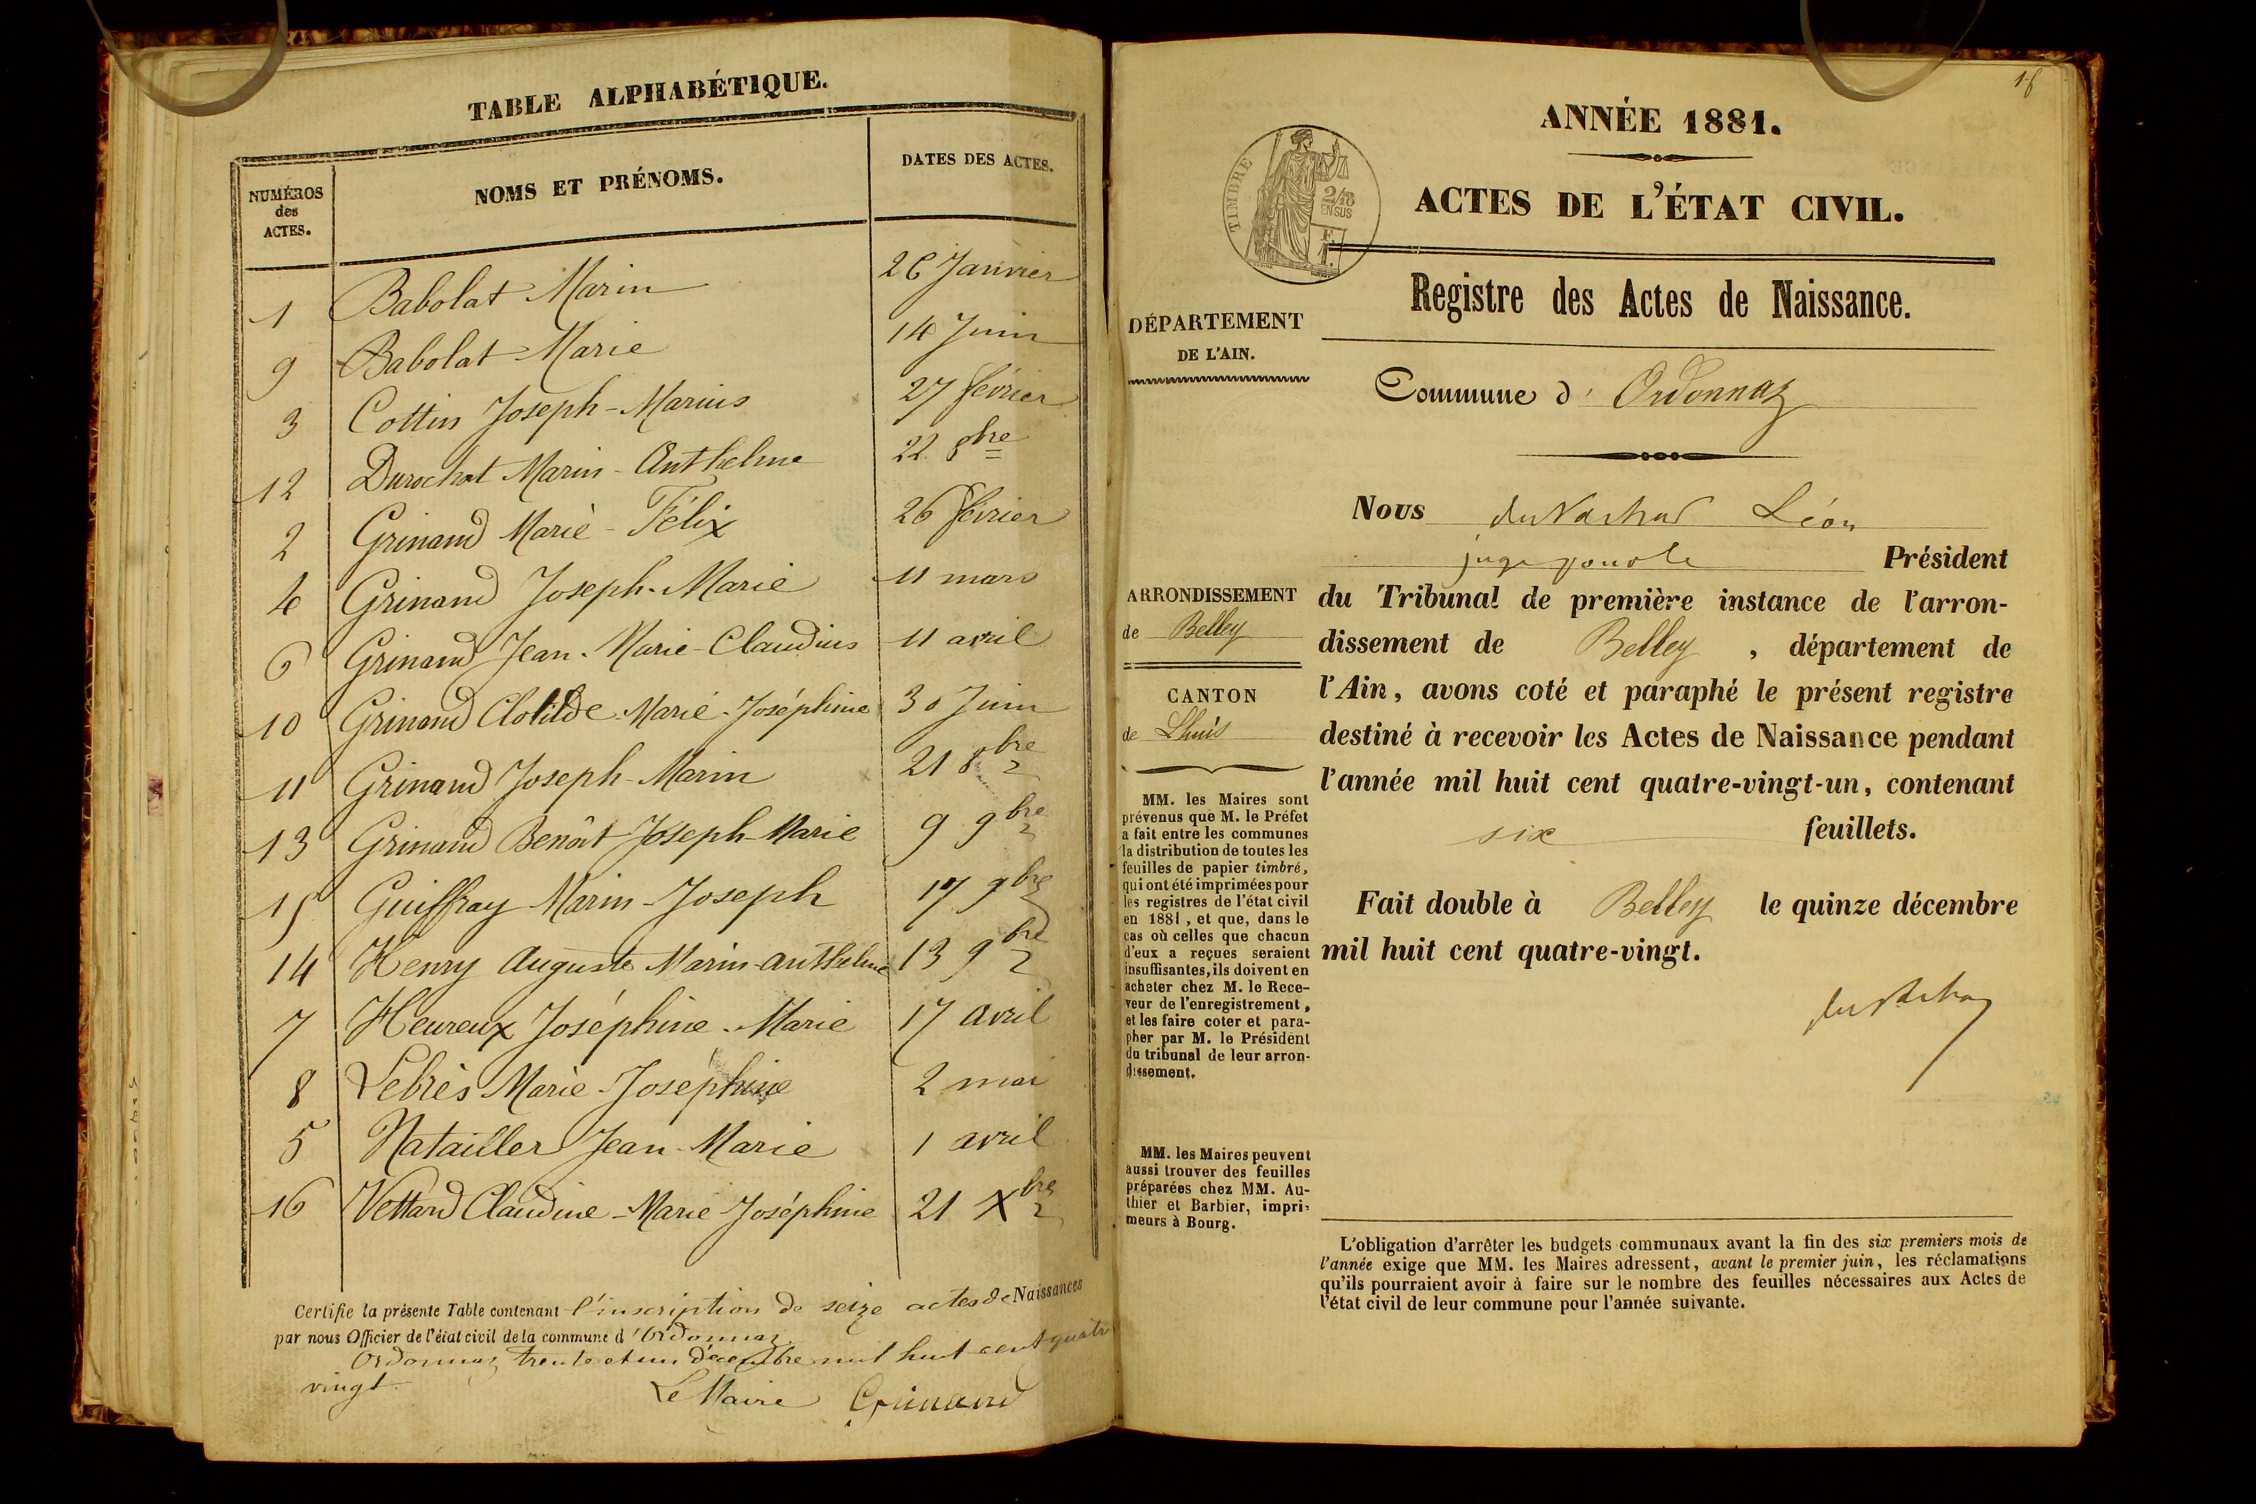 TABLE ALPHABÉTIQUE.
NUMÉROS des ACTES. NOMS ET PRÉNOMS. DATES DES ACTES.
1 Babolat Marin 26 Janvier
9 Babolat Marie 14 Juin
3 Cottin Joseph-Marius 27 février
12 Durochat Marin-Anthelme 22 8bre
2 Grinand Marie-Félix 26 février
4 Grinand Joseph-Marie 11 mars
6 Grinand Jean-Marie-Claudius 11 avril
10 Grinand Clotilde-Marie-Joséphine 30 Juin
11 Grinand Joseph-Marin 21 8bre
13 Grinand Benoît Joseph-Marie 9 9bre
15 Guiffray Marin-Joseph 17 9bre
14 Henry Auguste Marin-Anthelme 13 9bre
7 Heureux Joséphine-Marie 17 avril
8 Lebrès Marie-Joséphine 2 mai
5 Natailler Jean-Marie 1 avril
16 Vettard Claudine-Marie-Joséphine 21 Xbre
Certifie la présente Table contenant l'inscription de seize actes de Naissances
par nous Officier de l'état civil de la commune d'Ordonnaz.
Ordonnaz, trente et un décembre mil huit cent quatre
vingt.
Le Maire Grinand
ANNÉE 1881.
ACTES DE L'ÉTAT CIVIL.
TIMBRE
2/10
EN SUS
Registre des Actes de Naissance.
DÉPARTEMENT
DE L'AIN.
Commune d'Ordonnaz
Nous Léon
juge Président
du Tribunal de première instance de l'arron-
dissement de Belley, département de
l'Ain, avons coté et paraphé le présent registre
destiné à recevoir les Actes de Naissance pendant
l'année mil huit cent quatre-vingt-un, contenant
six feuillets.
Fait double à Belley le quinze décembre
mil huit cent quatre-vingt.
ARRONDISSEMENT
de Belley
CANTON
de Lhuis
MM. les Maires sont
prévenus que M. le Préfet
a fait entre les communes
la distribution de toutes les
feuilles de papier timbré,
qui ont été imprimées pour
les registres de l'état civil
en 1881, et que, dans le
cas où celles que chacun
d'eux a reçues seraient
insuffisantes, ils doivent en
acheter chez M. le Rece-
veur de l'enregistrement,
et les faire coter et para-
pher par M. le Président
du tribunal de leur arron-
dissement.
MM. les Maires peuvent
aussi trouver des feuilles
préparées chez MM. Au-
thier et Barbier, impri-
meurs à Bourg.
L'obligation d'arrêter les budgets communaux avant la fin des six premiers mois de
l'année exige que MM. les Maires adressent, avant le premier juin, les réclamations
qu'ils pourraient avoir à faire sur le nombre des feuilles nécessaires aux Actes de
l'état civil de leur commune pour l'année suivante.